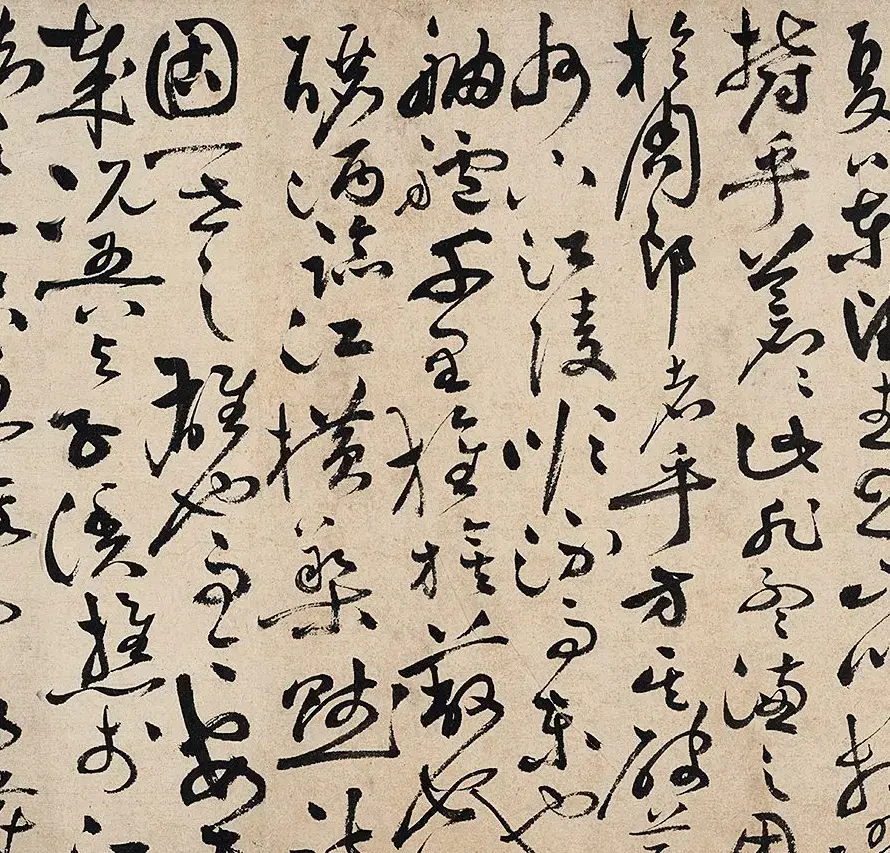 夏口東望武昌山川相
鬱乎蒼蒼此非孟德之困
於周郎者乎方其破荊
州下江陵順流而東也
舳艫千里旌旗蔽空
釃酒臨江橫槊賦詩
固一世之雄也而今安在
哉況吾與子漁樵於江